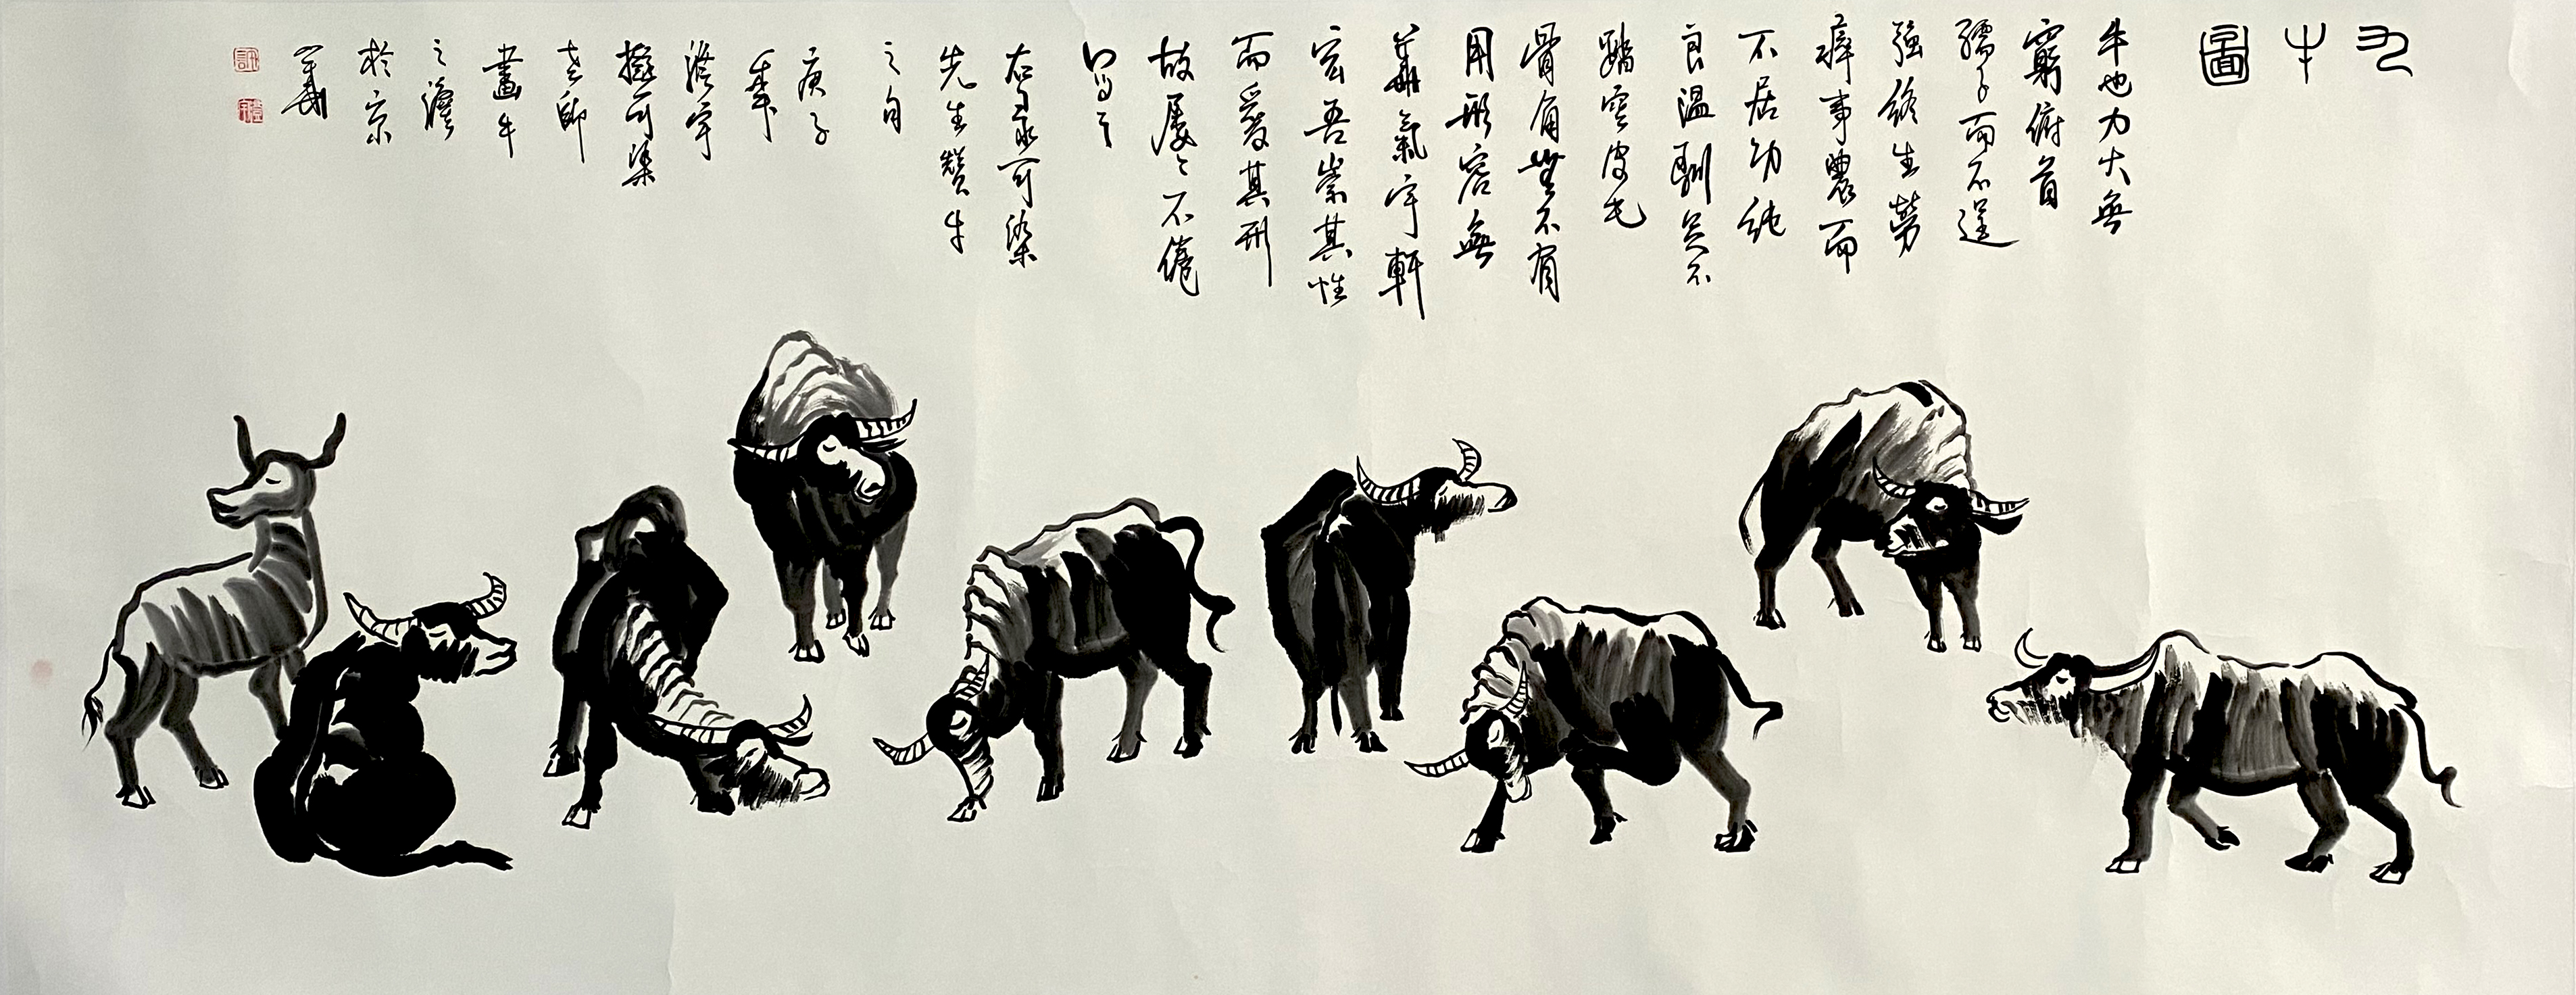 九牛圖
牛也力大無
窮俯首
孺子而不逞
強終生勞
瘁事農而
不居功純
良溫馴足不
踏空皮毛
骨角無不有
用形容無
華氣宇軒
宏吾崇其性
而愛其形
故屢々不倦
寫之
右录可染
先生贊牛
之句
庚子
年
擬可染
老師
畫牛
之
於京